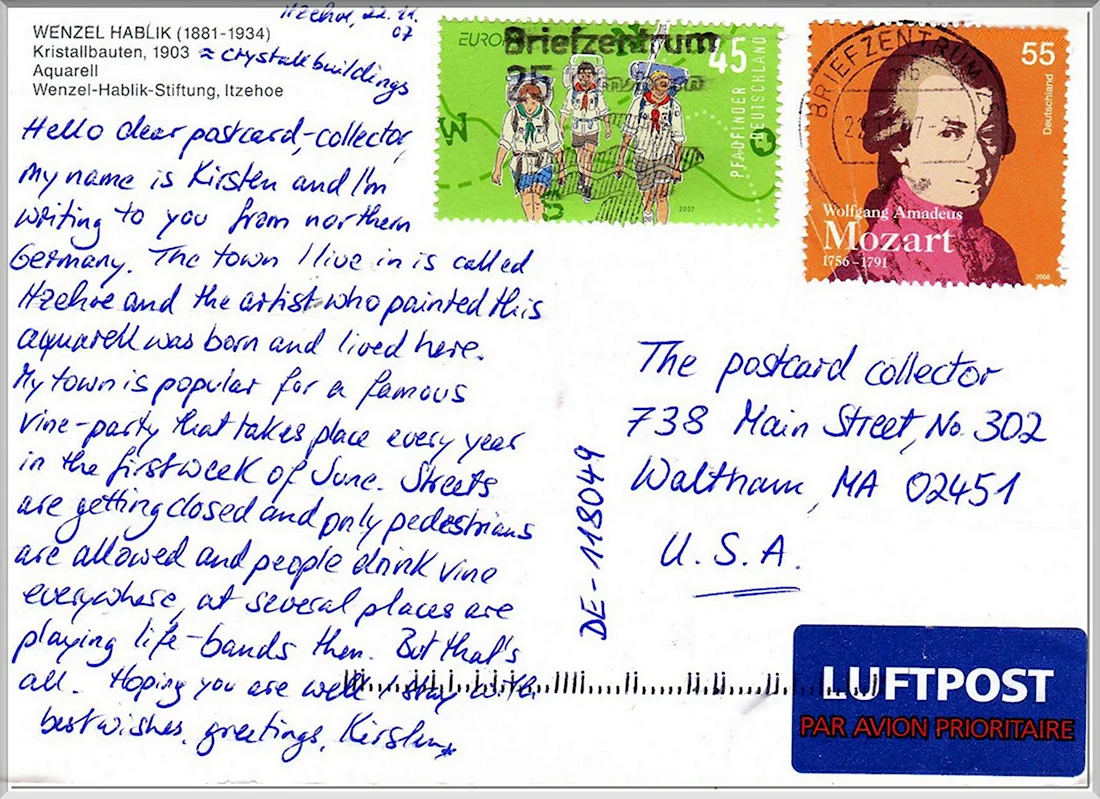 Itzehoe, 22.11.
07
WENZEL HABLIK (1881-1934)
Kristallbauten, 1903 ≈ crystall buildings
Aquarell
Wenzel-Hablik-Stiftung, Itzehoe
Hello dear postcard-collector,
my name is Kirsten and I'm
writing to you from northern
Germany. The town I live in is called
Itzehoe and the artist who painted this
aquarell was born and lived here.
My town is popular for a famous
vine-party that takes place every year
in the first week of June. Streets
are getting closed and only pedestrians
are allowed and people drink vine
everywhere, at several places are
playing life-bands then. But that's
all. Hoping you are well I stay with
best wishes, greetings, Kirsten
EUROPA
Briefzentrum
25
45
PFADFINDER
DEUTSCHLAND
W
O
S
2007
BRIEFZENTRUM
55
Deutschland
Wolfgang Amadeus
Mozart
1756–1791
2006
The postcard collector
738 Main Street, No. 302
Waltham, MA 02451
U.S.A.
DE-118049
LUFTPOST
PAR AVION PRIORITAIRE